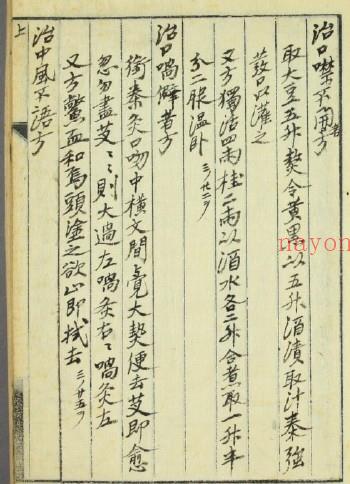 治口噤不開者方
取大豆五升熬令黄黑以五升酒漬取汁桼強
發口以灌之
又方獨活四兩桂二兩以酒水各二升合煮取一升半
分二服温卧 三ノ廿二ウ
治口喎僻者方
銜桼灸口吻中横文間覺大熱便去艾即愈
忽勿盡艾〻〻則大過左喎灸右〻喎灸左
又方鱉血和烏頭塗之欲止即拭去 三ノ廿五ウ
治中風不語方
上
nayon